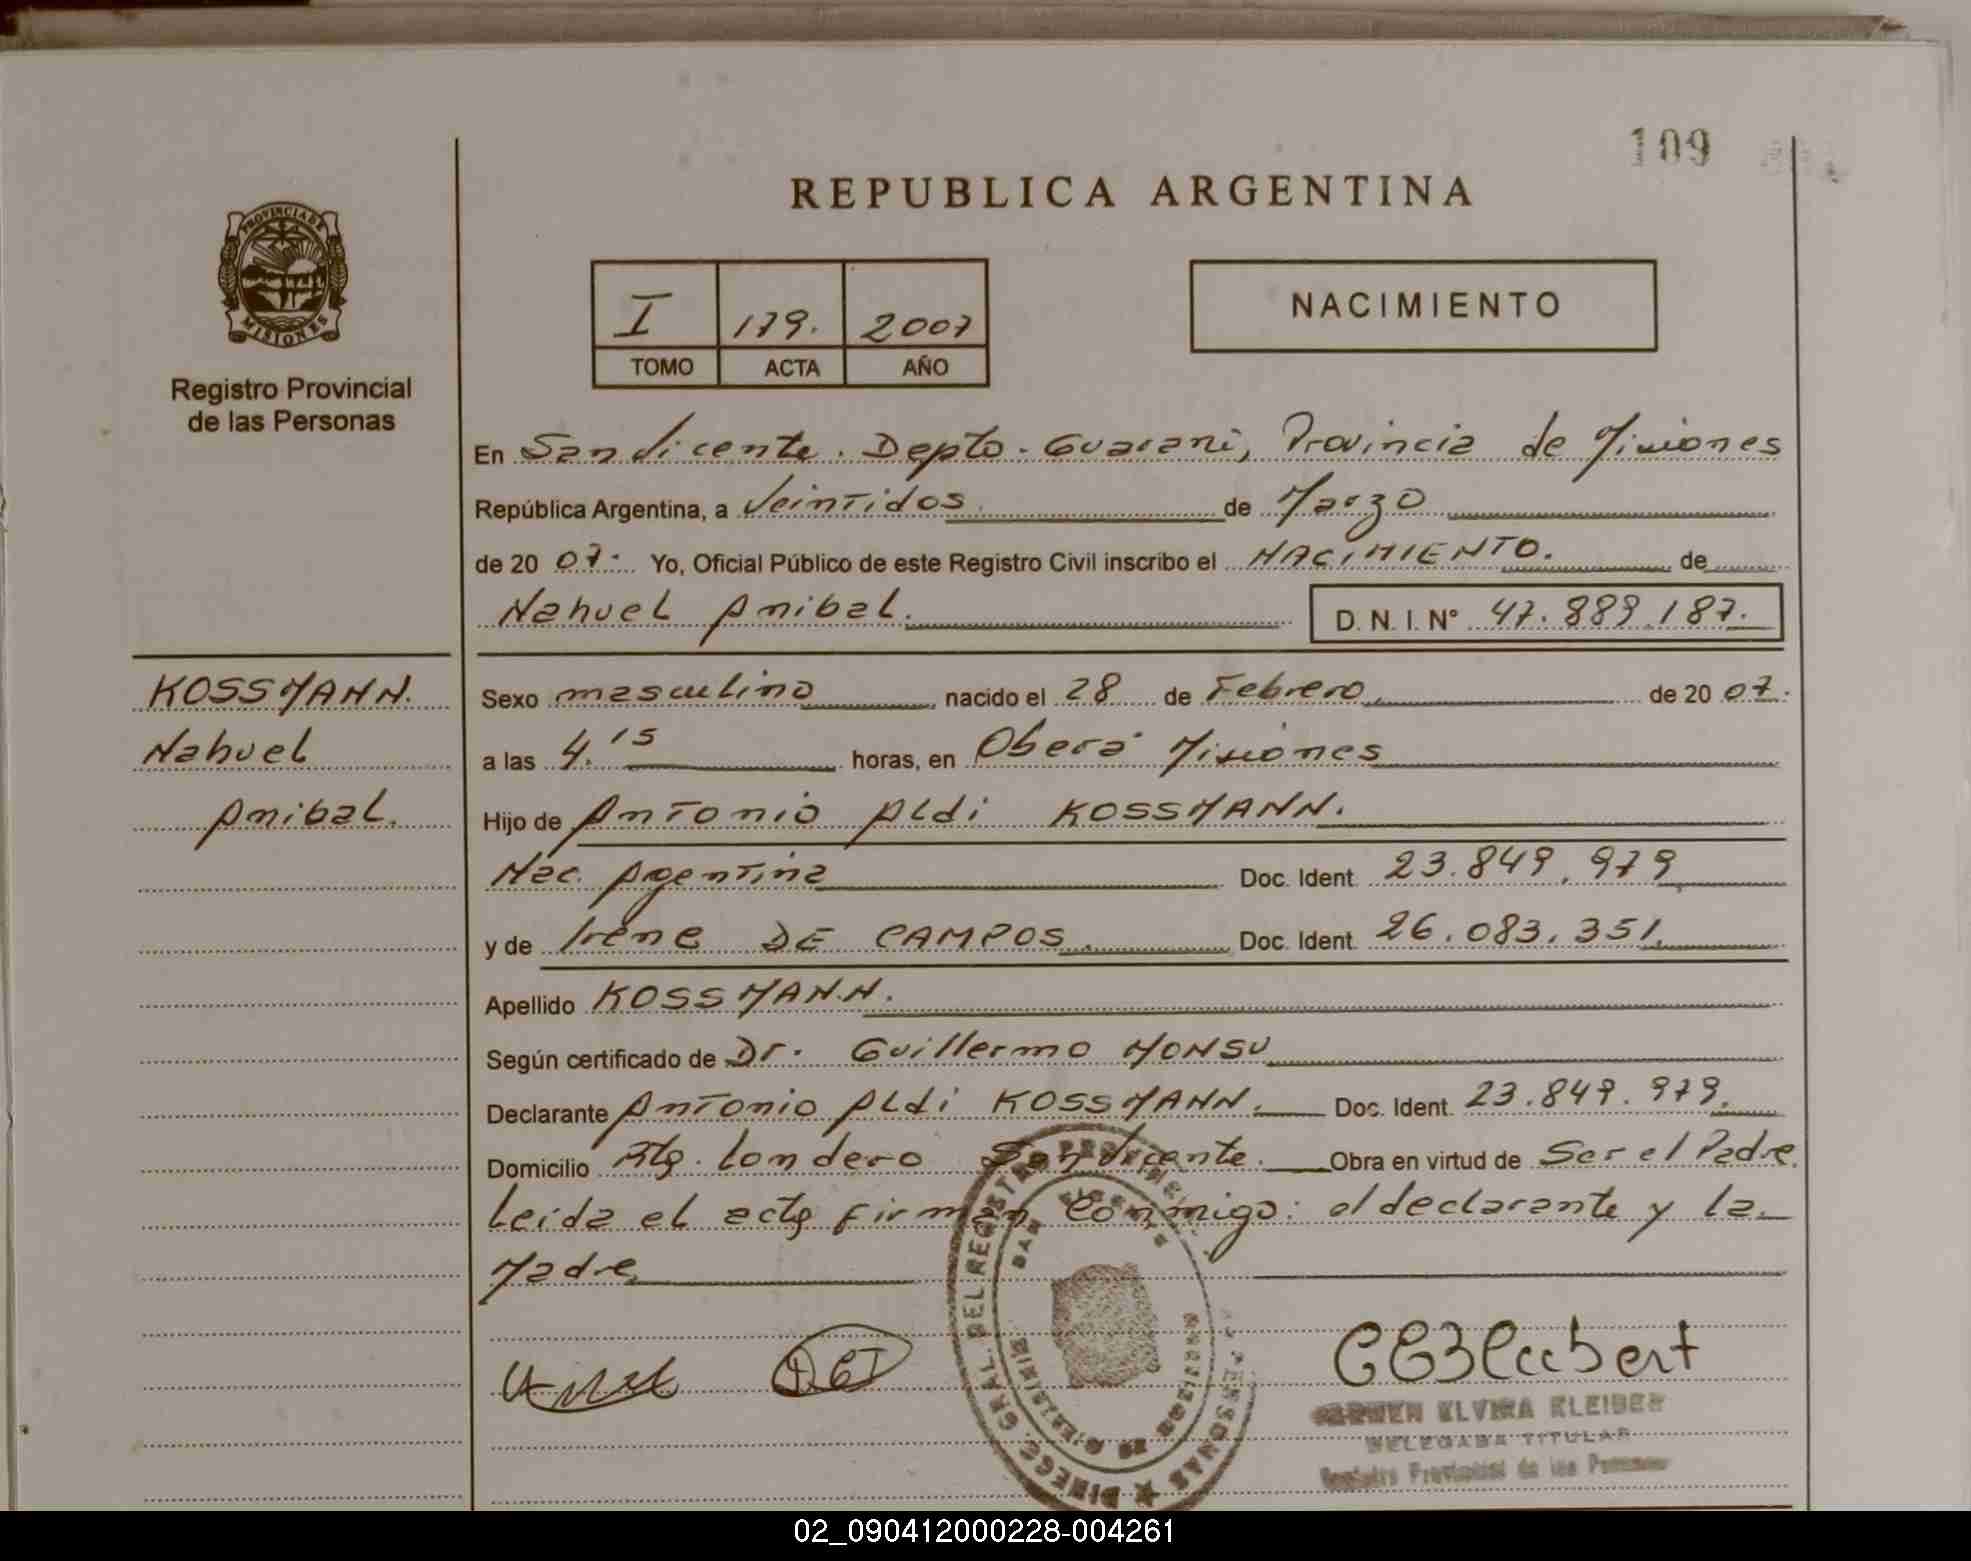 109
REPUBLICA ARGENTINA
PROVINCIA DE
MISIONES
Registro Provincial
de las Personas
I 179. 2007
TOMO ACTA AÑO
NACIMIENTO
En San Vicente. Depto. Guaraní, Provincia de Misiones
República Argentina, a Veintidos. de Marzo
de 20 07. Yo, Oficial Público de este Registro Civil inscribo el NACIMIENTO. de
Nahuel Anibal. D. N. I. Nº 47.889.187.
KOSSMANN.
Nahuel
Anibal.
Sexo masculino nacido el 28 de Febrero, de 20 07.
a las 4.15 horas, en Oberá Misiones
Hijo de Antonio Aldi KOSSMANN.
Nac. Argentina Doc. Ident. 23.849.979
y de Irene DE CAMPOS. Doc. Ident. 26.083.351.
Apellido KOSSMANN.
Según certificado de Dr. Guillermo MONSU
Declarante Antonio Aldi KOSSMANN. Doc. Ident. 23.849.979.
Domicilio Londero San Vicente. Obra en virtud de Ser el Padre.
Leida el acta firman conmigo: el declarante y la
Madre
CARMEN ELVIRA KLEIBER
DELEGADA TITULAR
Registro Provincial de las Personas
02_090412000228-004261